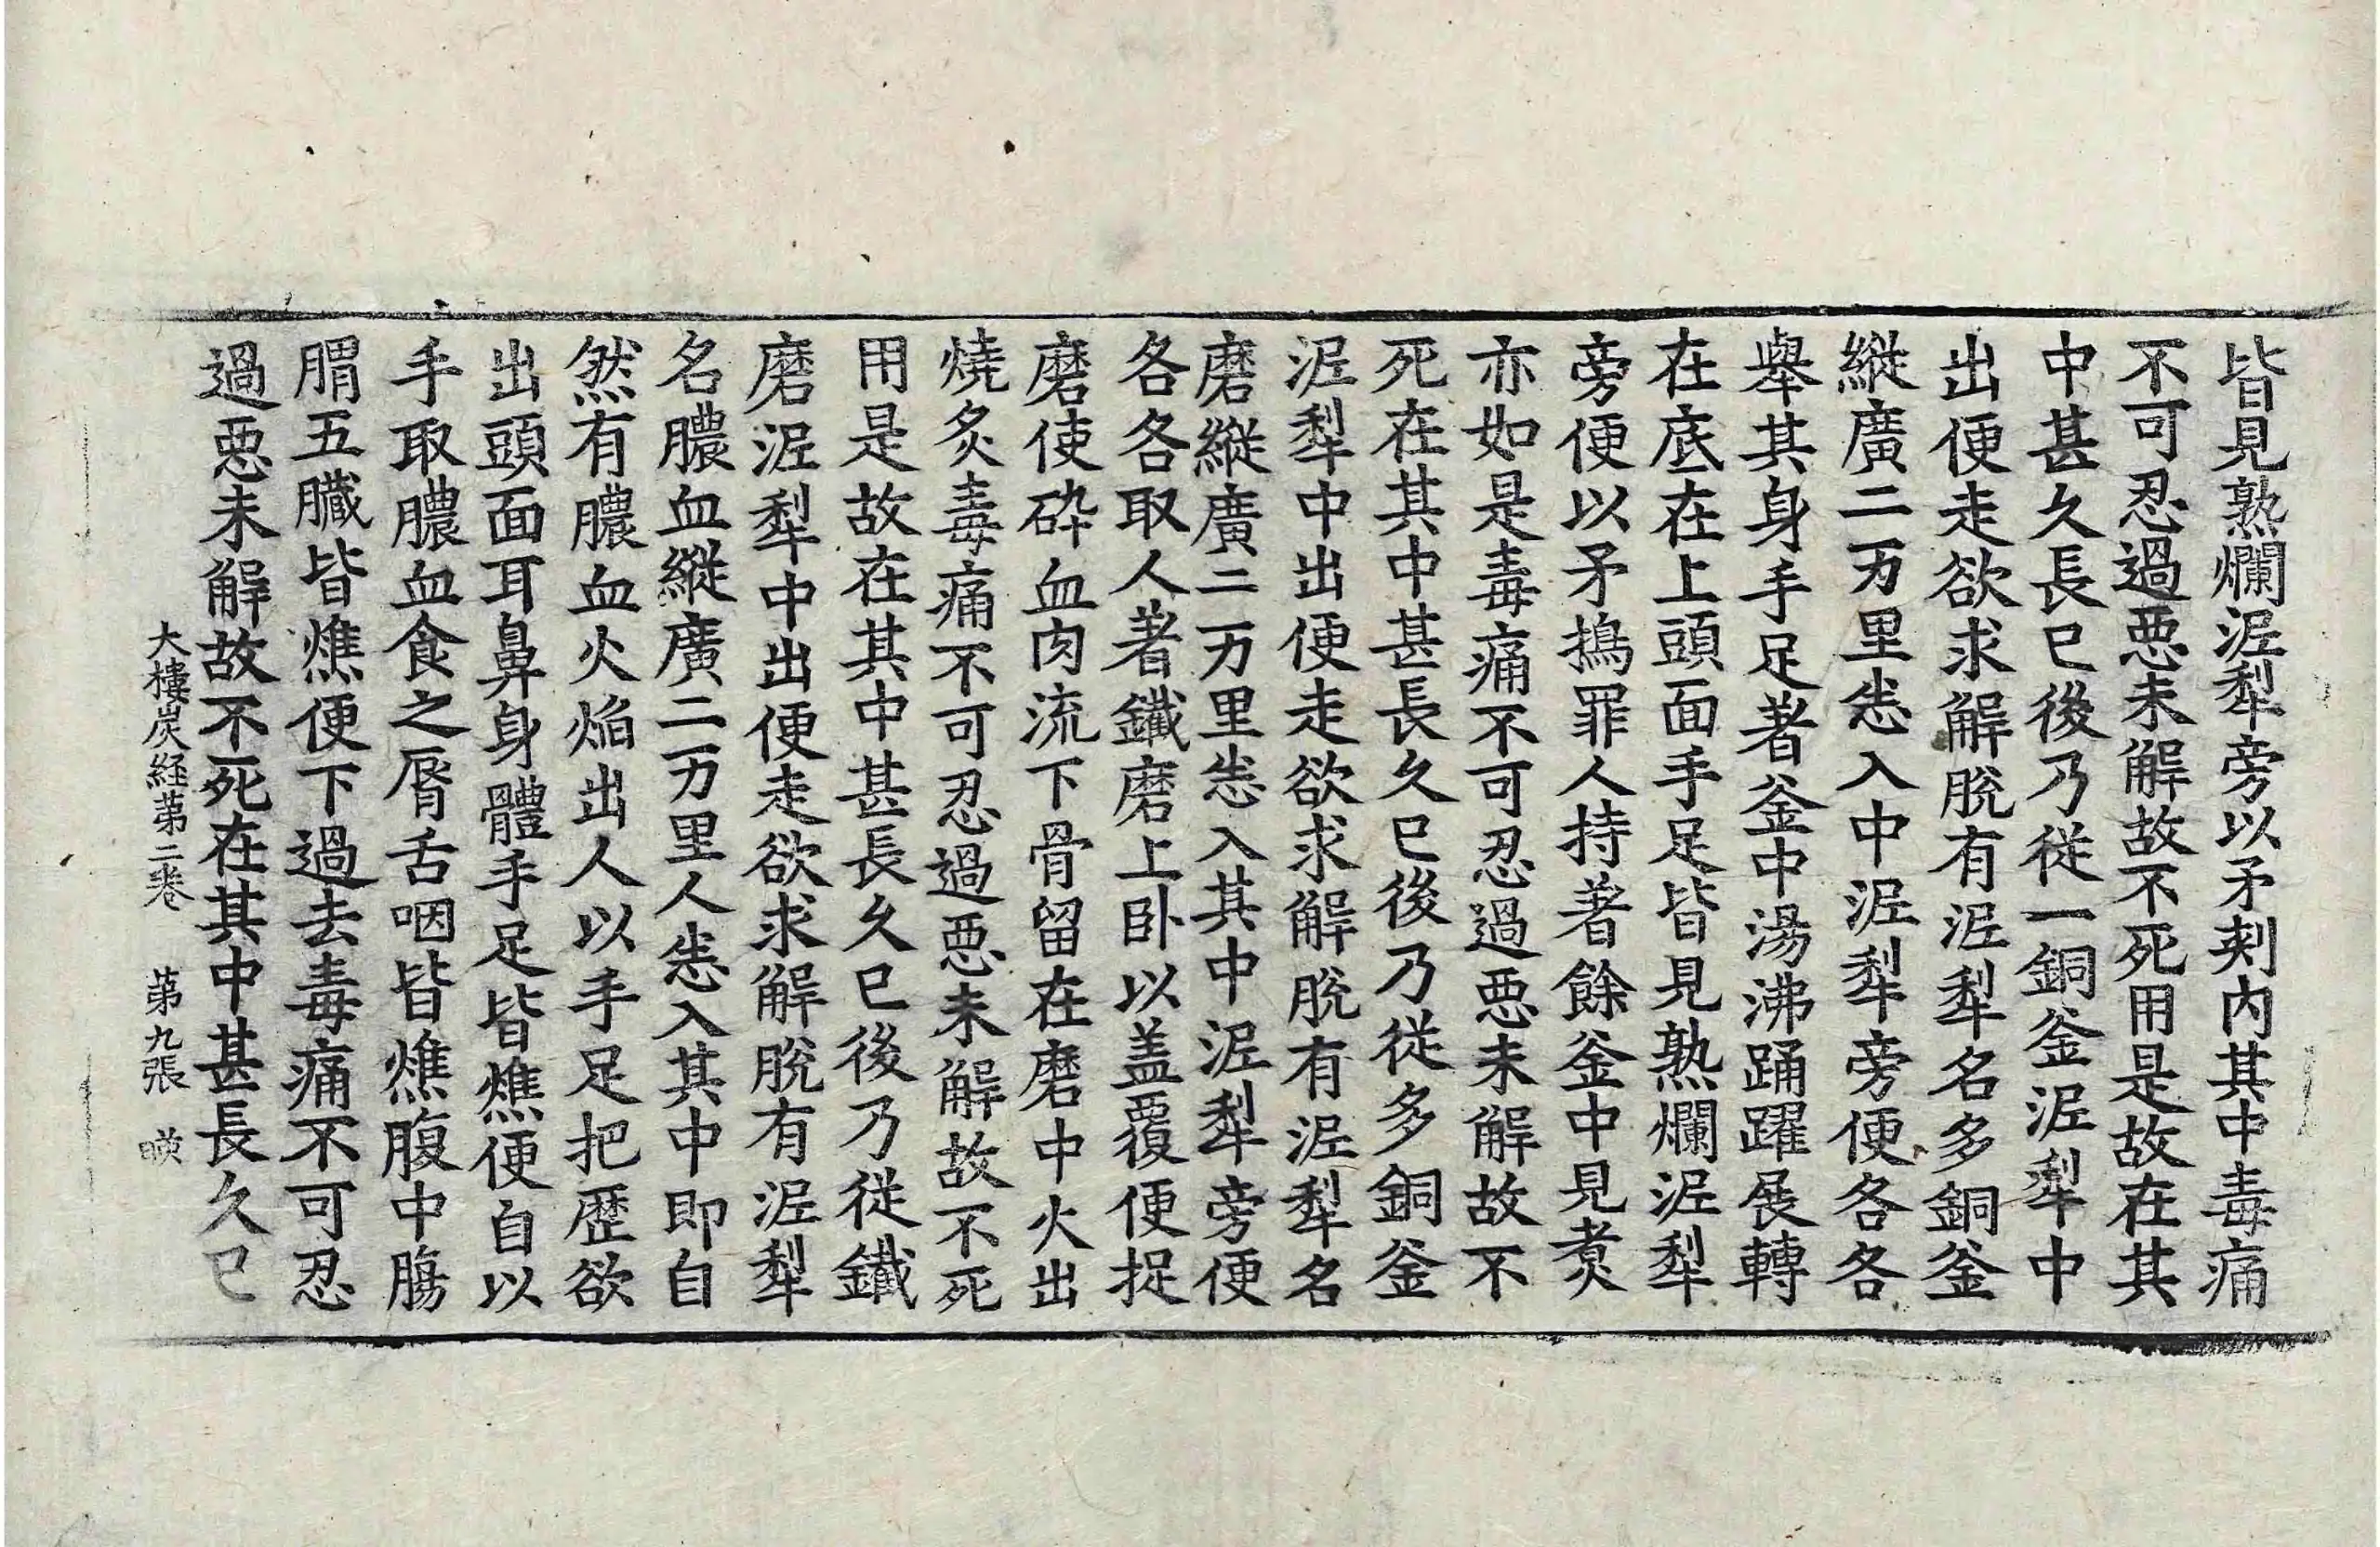 皆見熟爛泥犁旁以矛刾內其中毒痛
不可忍過惡未解故不死用是故在其
中甚久長已後乃從一銅釜泥犁中
出便走欲求解脫有泥犁名多銅釜
縱廣二万里悉入中泥犁旁便各各
舉其身手足著釜中湯沸踊躍展轉
在底在上頭面手足皆見熟爛泥犁
旁便以矛撝罪人持著餘釜中見煑
亦如是毒痛不可忍過惡未解故不
死在其中甚長久已後乃從多銅釜
泥犁中出便走欲求解脫有泥犁名
磨縱廣二万里悉入其中泥犁旁便
各各取人著鐵磨上卧以盖覆便捉
磨使碎血肉流下骨留在磨中火出
燒炙毒痛不可忍過惡未解故不死
用是故在其中甚長久已後乃從鐵
磨泥犁中出便走欲求解脫有泥犁
名膿血縱廣二万里人悉入其中即自
然有膿血火焰出人以手足把歷欲
出頭面耳鼻身體手足皆燋便自以
手取膿血食之脣舌咽皆燋腹中腸
胃五臟皆燋便下過去毒痛不可忍
過惡未解故不死在其中甚長久已
大樓炭経苐二卷 苐九張